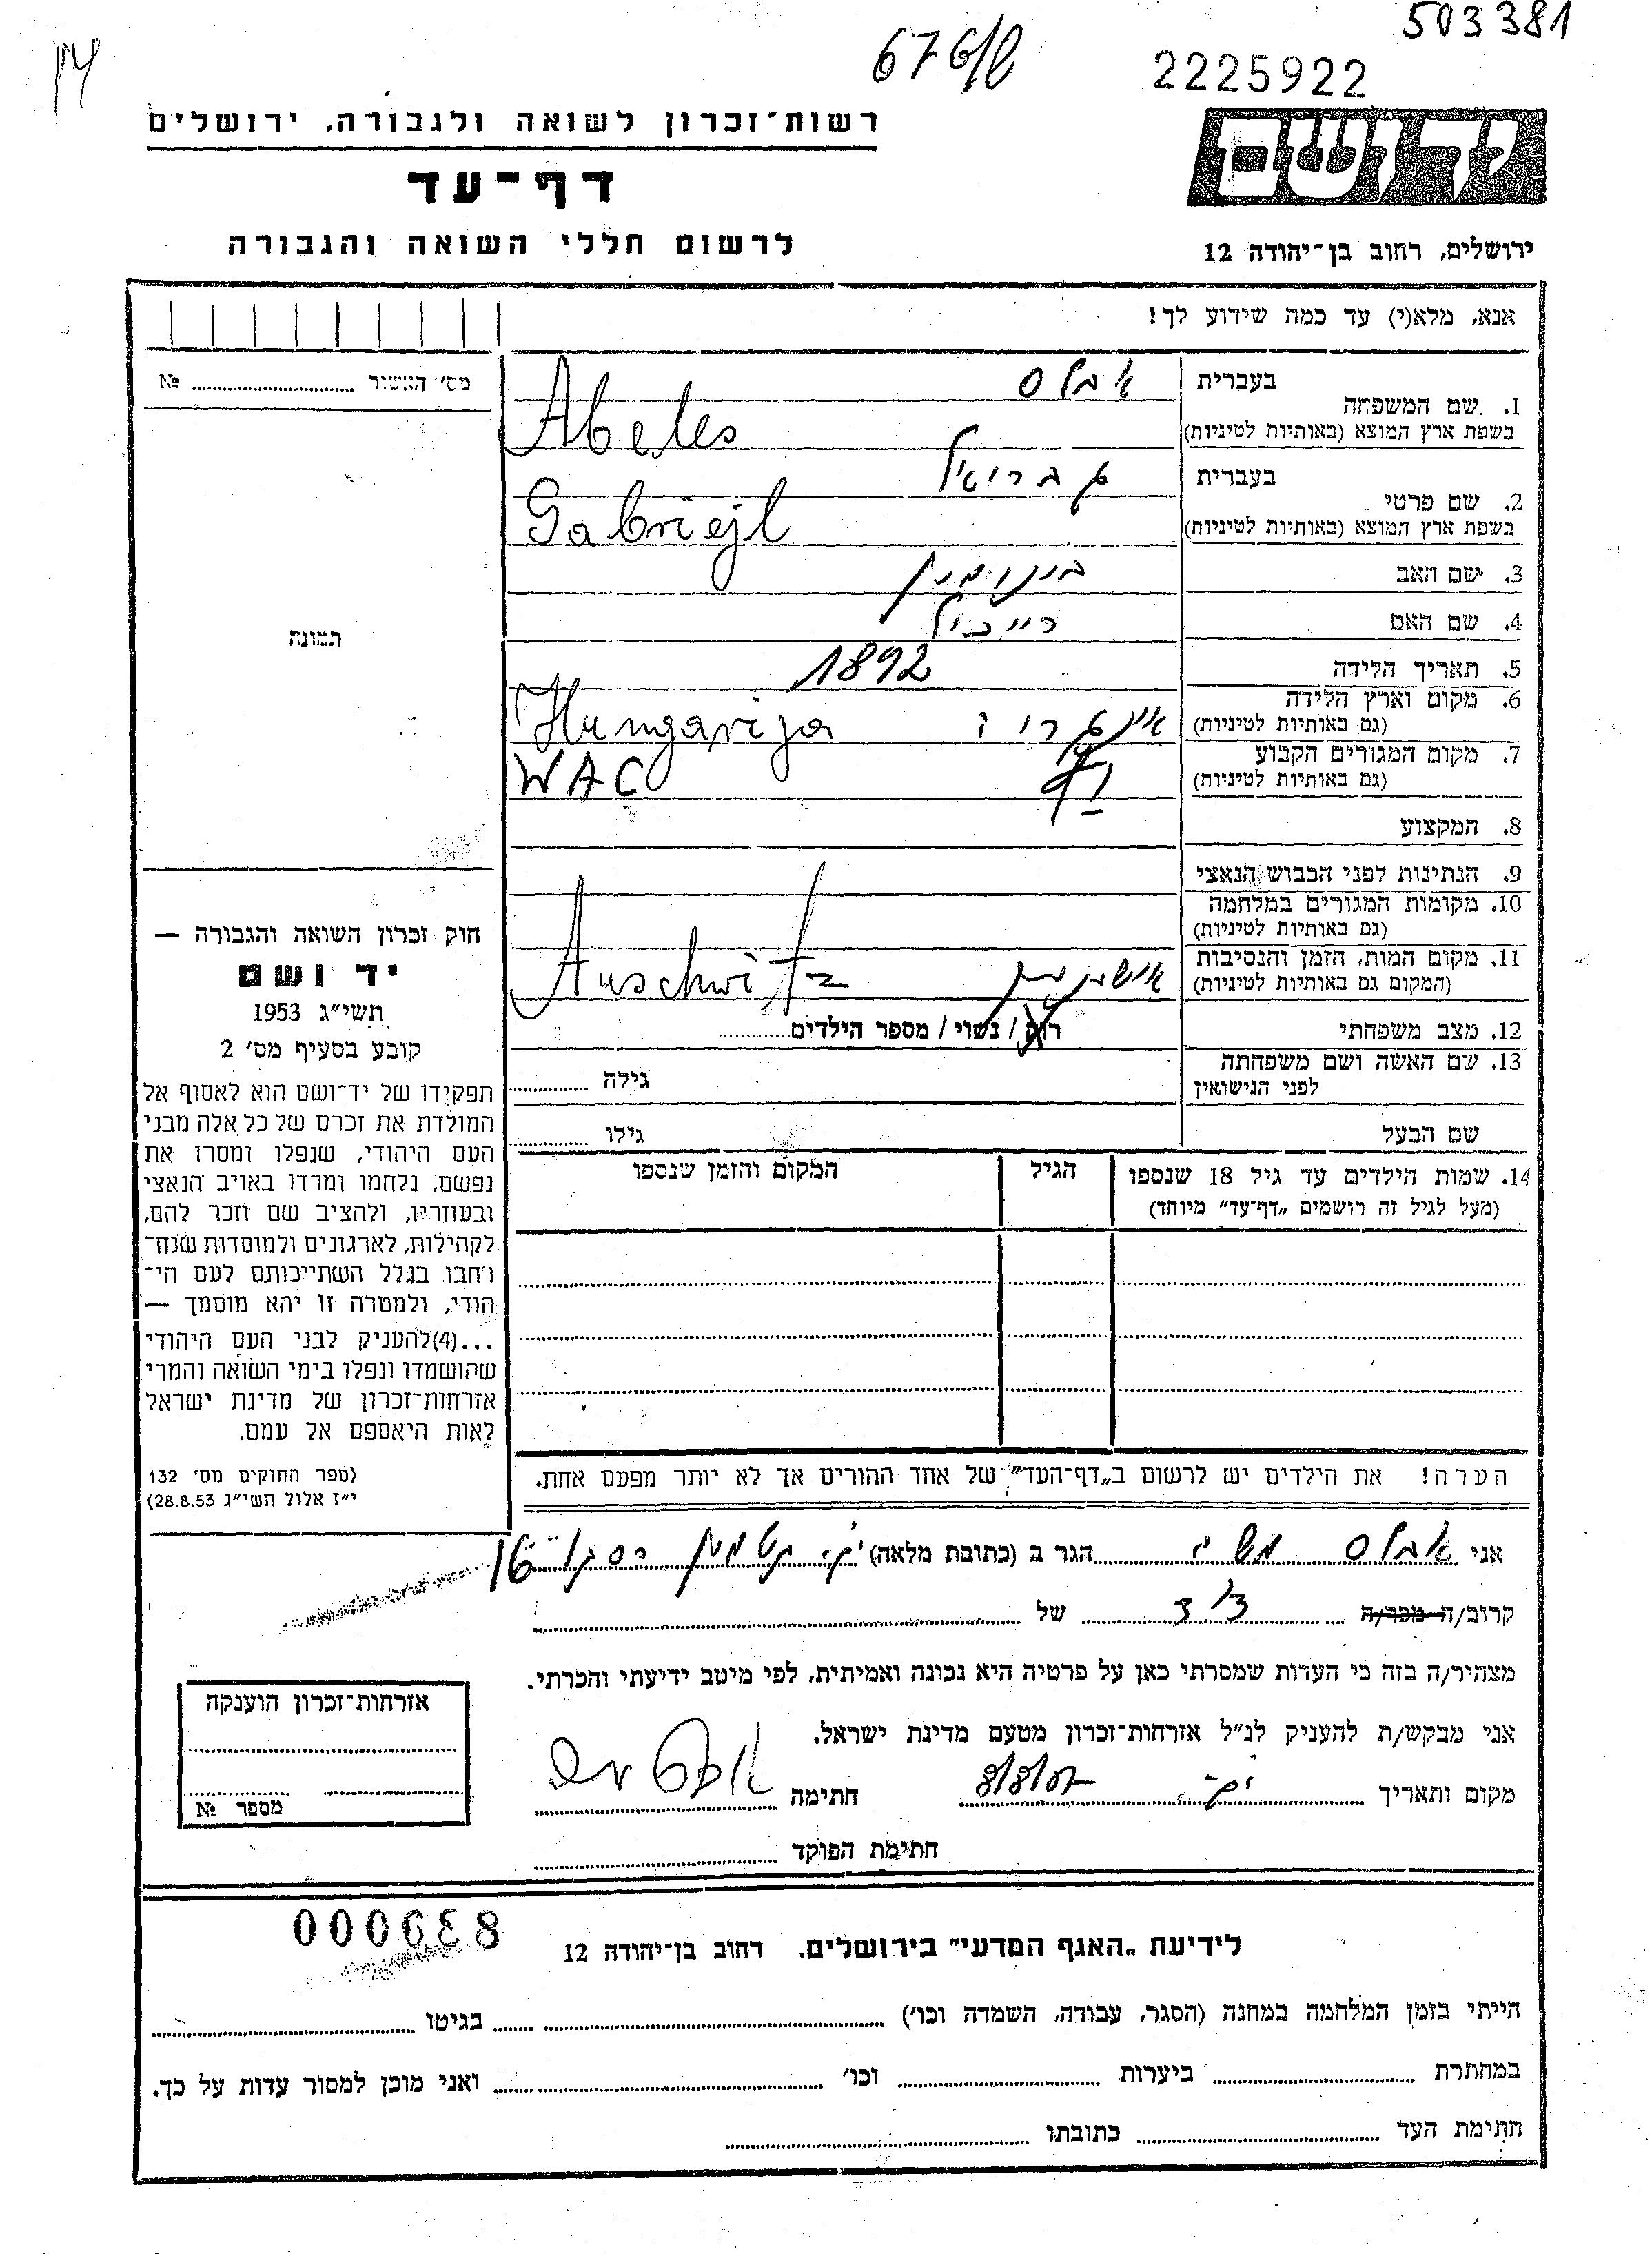 503381
676/8
2225922
רשות־זכרון לשואה ולגבורה, ירושלים
ידושם
דף־עד
לרשום חללי השואה והגבורה
ירושלים, רחוב בן־יהודה 12
אנא, מלא(י) עד כמה שידוע לך!
מס׳ האשור № ..........
1. שם המשפחה
בעברית אבלס
בשפת ארץ המוצא (באותיות לטיניות) Abeles
2. שם פרטי
בעברית גבריאל
בשפת ארץ המוצא (באותיות לטיניות) Gabriejl
3. שם האב בינימין
4. שם האם
5. תאריך הלידה 1892
6. מקום וארץ הלידה
(גם באותיות לטיניות) Hungarija
7. מקום המגורים הקבוע
(גם באותיות לטיניות) WAC
8. המקצוע
9. הנתינות לפני הכבוש הנאצי
10. מקומות המגורים במלחמה
(גם באותיות לטיניות)
11. מקום המות, הזמן והנסיבות
(המקום גם באותיות לטיניות) Auschwitz
12. מצב משפחתי רווק / נשוי / מספר הילדים..........
13. שם האשה ושם משפחתה
לפני הנישואין גילה ..........
שם הבעל גילו ..........
14. שמות הילדים עד גיל 18 שנספו הגיל המקום והזמן שנספו
(מעל לגיל זה רושמים „דף־עד” מיוחד)
הערה! את הילדים יש לרשום ב„דף־העד” של אחד ההורים אך לא יותר מפעם אחת.
תמונה
חוק זכרון השואה והגבורה —
יד ושם
תשי״ג 1953
קובע בסעיף מס׳ 2
תפקידו של יד־ושם הוא לאסוף אל
המולדת את זכרם של כל אלה מבני
העם היהודי, שנפלו ומסרו את
נפשם, נלחמו ומרדו באויב הנאצי
ובעוזריו, ולהציב שם וזכר להם,
לקהילות, לארגונים ולמוסדות שנח־
רבו בגלל השתייכותם לעם הי־
הודי, ולמטרה זו יהא מוסמך —
...(4)להעניק לבני העם היהודי
שהושמדו ונפלו בימי השואה והמרי
אזרחות־זכרון של מדינת ישראל
לאות היאספם אל עמם.
(ספר החוקים מס׳ 132
י״ז אלול תשי״ג 28.8.53)
אני אבלס משה הגר ב (כתובת מלאה)
קרוב/ה מכר/ה של
מצהיר/ה בזה כי העדות שמסרתי כאן על פרטיה היא נכונה ואמיתית, לפי מיטב ידיעתי והכרתי.
אני מבקש/ת להעניק לנ״ל אזרחות־זכרון מטעם מדינת ישראל.
מקום ותאריך חתימה
חתימת הפוקד
אזרחות־זכרון הוענקה
מספר №
000638
לידיעת „האגף המדעי” בירושלים. רחוב בן־יהודה 12
הייתי בזמן המלחמה במחנה (הסגר, עבודה, השמדה וכו׳) .......... בגיטו ..........
במחתרת .......... ביערות .......... וכו׳ .......... ואני מוכן למסור עדות על כך.
חתימת העד .......... כתובתו ..........